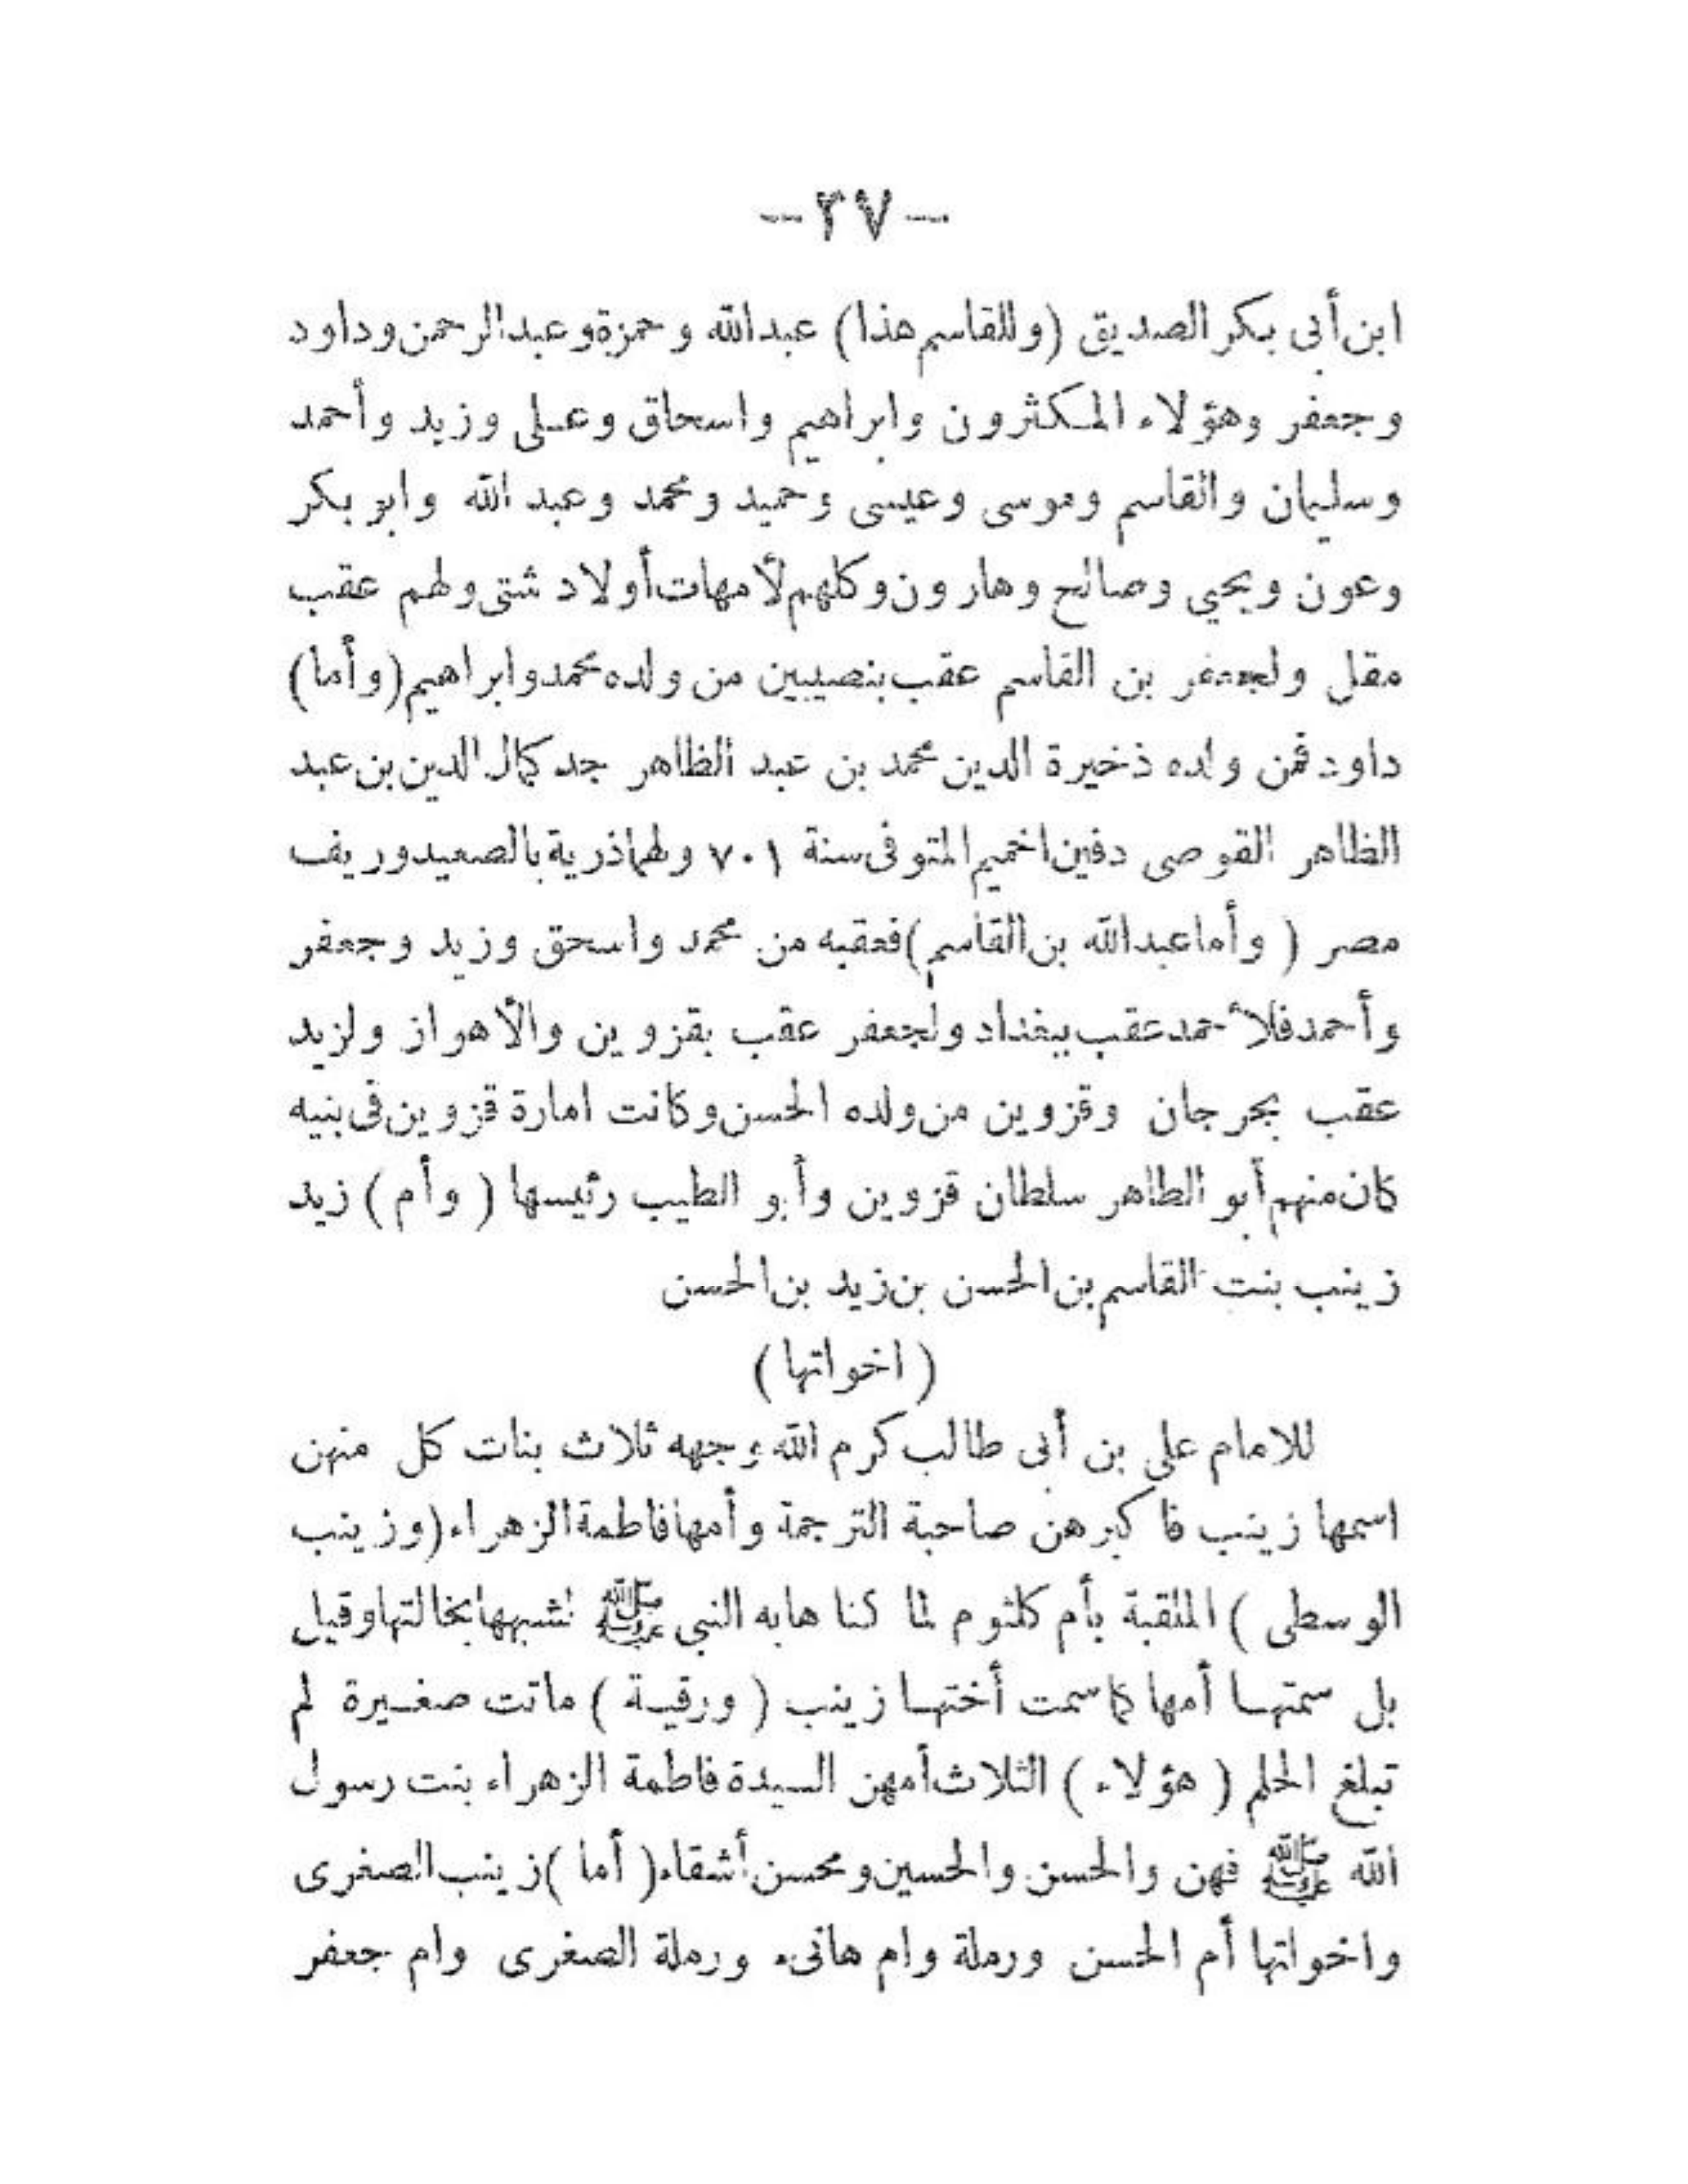 - ٣٧ -
ابن أبى بكر الصديق (وللقاسم هذا) عبد الله وحمزة وعبد الرحمن وداود
وجعفر وهؤلاء المكثرون وابراهيم واسحاق وعلى وزيد وأحمد
وسليمان والقاسم وموسى وعيسى وحميد ومحمد وعبد الله وابو بكر
وعون ويحيي وصالح وهارون وكلهم لأمهات أولاد شتى ولهم عقب
مقل ولجعفر بن القاسم عقب بنصيبين من ولده محمد وابراهيم (وأما)
داود فمن ولده ذخيرة الدين محمد بن عبد الظاهر جد كمال الدين بن عبد
الظاهر القوصى دفين اخميم المتوفى سنة ٧٠١ ولهما ذرية بالصعيد وريف
مصر ( وأما عبد الله بن القاسم ) فعقبه من محمد واسحق وزيد وجعفر
وأحمد فلأحمد عقب ببغداد ولجعفر عقب بقزوين والأهواز ولزيد
عقب بجرجان وقزوين من ولده الحسن وكانت امارة قزوين فى بنيه
كان منهم أبو الطاهر سلطان قزوين وأبو الطيب رئيسها ( وأم ) زيد
زينب بنت القاسم بن الحسن بن زيد بن الحسن
( اخواتها )
للامام على بن أبى طالب كرم الله وجهه ثلاث بنات كل منهن
اسمها زينب فاكبرهن صاحبة الترجمة وأمها فاطمة الزهراء (وزينب
الوسطى ) الملقبة بأم كلثوم لما كناها به النبي ﷺ لشبهها بخالتها وقيل
بل سمتها أمها كما سمت أختها زينب ( ورقية ) ماتت صغيرة لم
تبلغ الحلم ( هؤلاء ) الثلاث أمهن السيدة فاطمة الزهراء بنت رسول
الله ﷺ فهن والحسن والحسين ومحسن أشقاء ( أما ) زينب الصغرى
واخواتها أم الحسن ورملة وام هانىء ورملة الصغرى وام جعفر